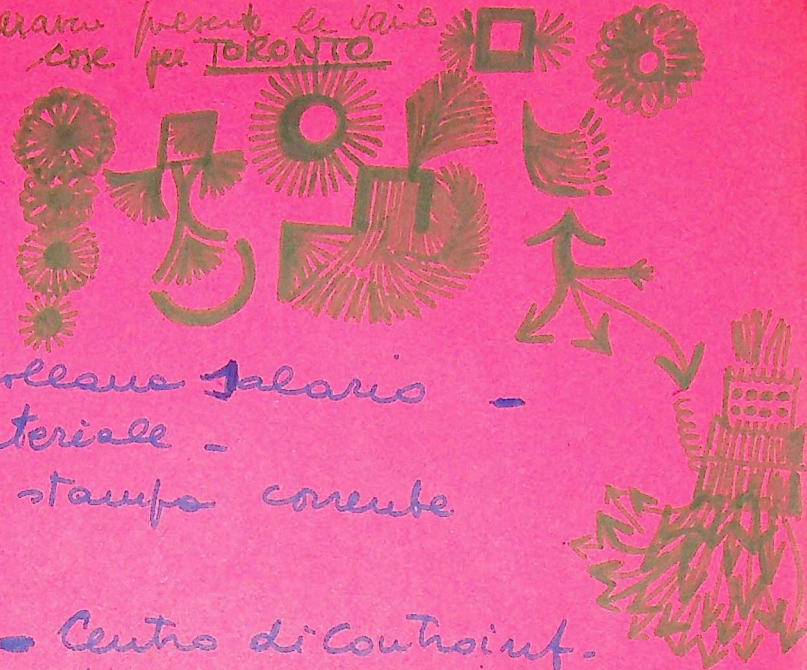 presente le varie
cose per TORONTO
ollana Salario -
teriale -
stampa corrente
- Centro di Controinf.